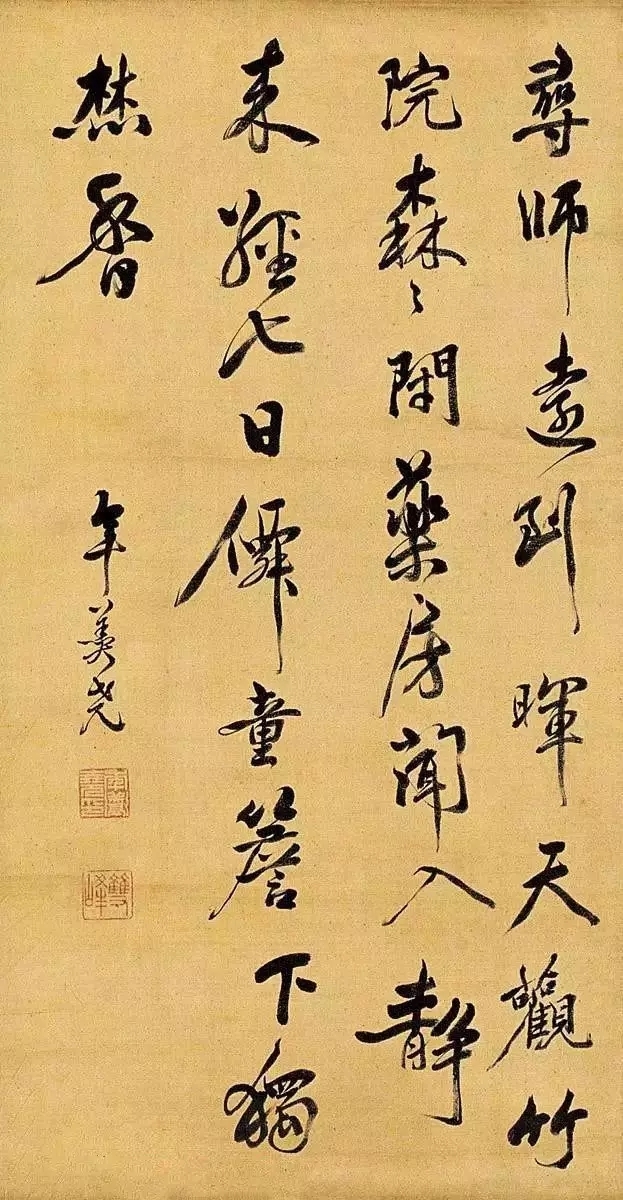 尋師遠到暉天觀竹
院森々閉藥房聞入静
来經七日僊童簷下獨
焚香
年羹堯
雙峰